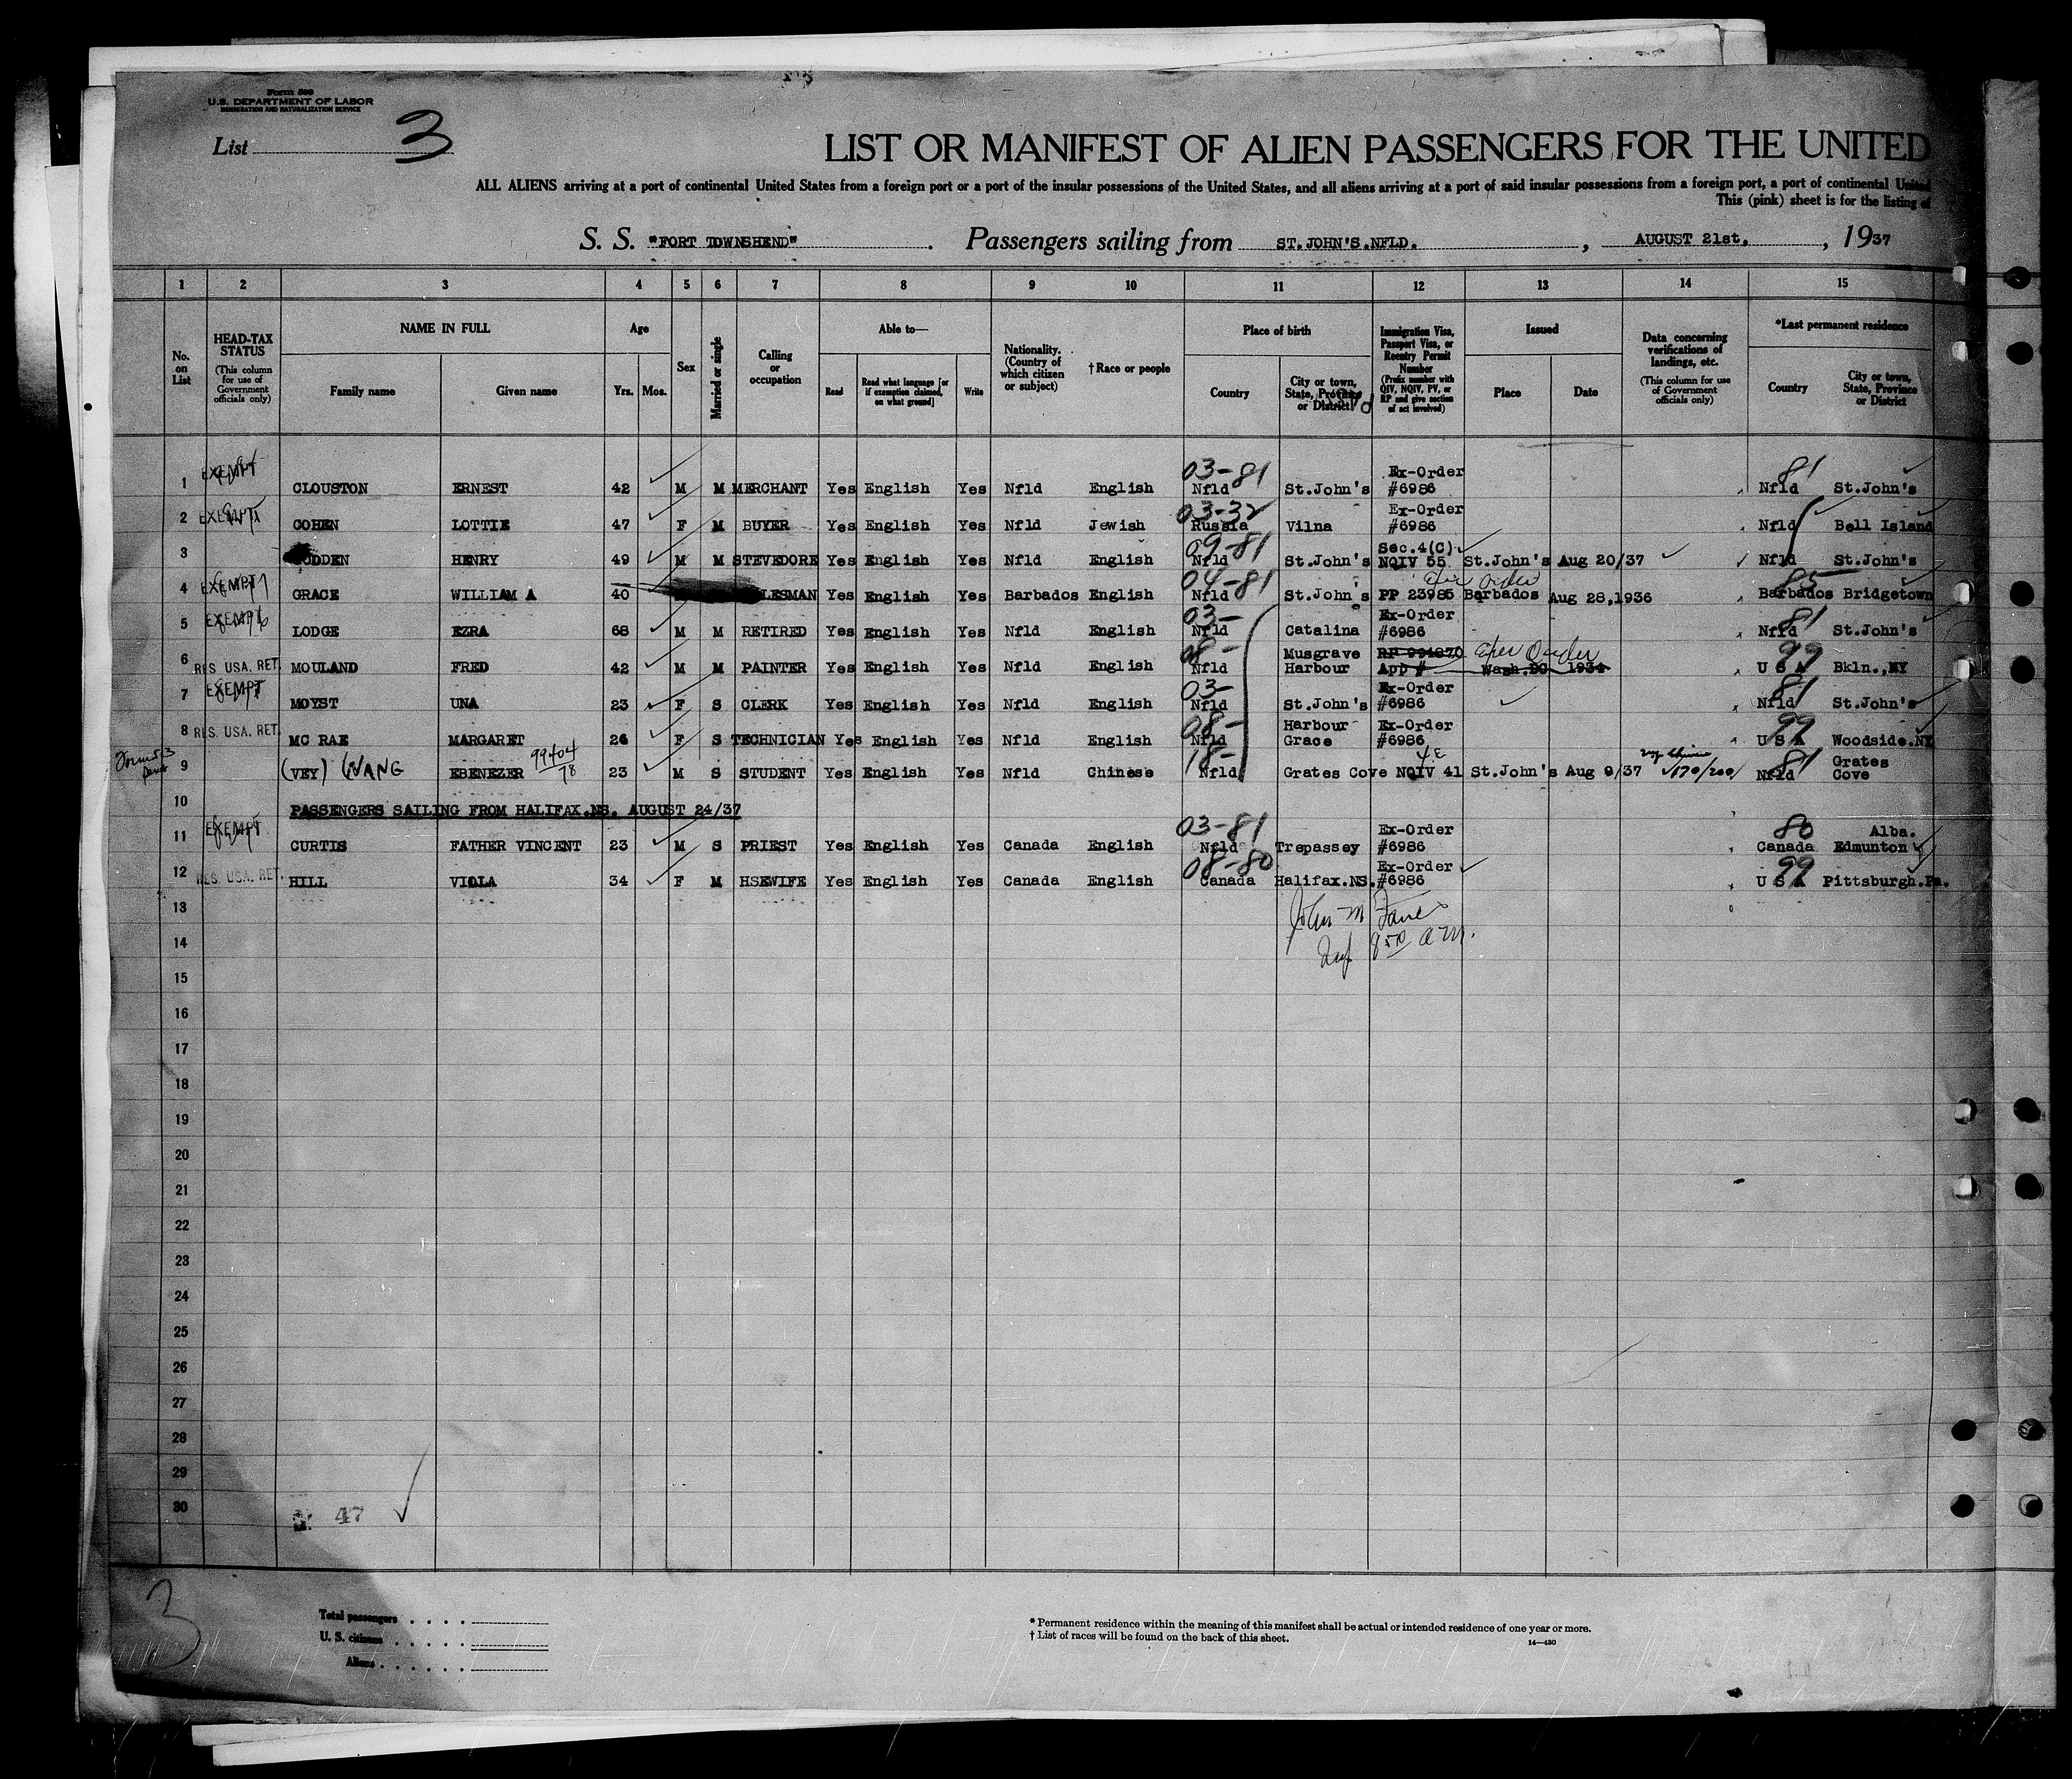 Form 500
U.S. DEPARTMENT OF LABOR
IMMIGRATION AND NATURALIZATION SERVICE
List 3
LIST OR MANIFEST OF ALIEN PASSENGERS FOR THE UNITED
ALL ALIENS arriving at a port of continental United States from a foreign port or a port of the insular possessions of the United States, and all aliens arriving at a port of said insular possessions from a foreign port, a port of continental United
This (pink) sheet is for the listing of
S. S. "FORT TOWNSHEND". Passengers sailing from ST.JOHN'S.NFLD. , AUGUST 21st. , 1937
1 2 3 4 5 6 7 8 9 10 11 12 13 14 15
No. on List
HEAD-TAX STATUS (This column for use of Government officials only)
NAME IN FULL
Family name Given name
Age
Yrs. Mos.
Sex
Married or single
Calling or occupation
Able to—
Read Read what language [or if exemption claimed, on what ground] Write
Nationality. (Country of which citizen or subject)
†Race or people
Place of birth
Country City or town, State, Province or District
Immigration Visa, Passport Visa, or Reentry Permit Number (Prefix number with QIV, NQIV, PV, or RP and give section of act involved)
Issued
Place Date
Data concerning verifications of landings, etc. (This column for use of Government officials only)
*Last permanent residence
Country City or town, State, Province or District
1 EXEMPT CLOUSTON ERNEST 42 M M MERCHANT Yes English Yes Nfld English 03-81 Nfld St.John's Ex-Order #6986 81 Nfld St.John's
2 EXEMPT COHEN LOTTIE 47 F M BUYER Yes English Yes Nfld Jewish 03-32 Russia Vilna Ex-Order #6986 Nfld Bell Island
3 HENRY 49 M M STEVEDORE Yes English Yes Nfld English 09-81 Nfld St.John's Sec.4(C) NQIV 55 St.John's Aug 20/37 Nfld St.John's
4 EXEMPT GRACE WILLIAM A 40 LESMAN Yes English Yes Barbados English 04-81 Nfld St.John's PP 23985 Exer Order Barbados Aug 28,1936 85 Barbados Bridgetown
5 EXEMPT LODGE EZRA 68 M M RETIRED Yes English Yes Nfld English 03- Nfld Catalina Ex-Order #6986 81 Nfld St.John's
6 RES. USA. RET. MOULAND FRED 42 M M PAINTER Yes English Yes Nfld English 08- Nfld Musgrave Harbour RP 991870 App # Exer Order Wash.DC 1934 99 U S A Bkln.,NY
7 EXEMPT MOYST UNA 23 F S CLERK Yes English Yes Nfld English 03- Nfld St.John's Ex-Order #6986 81 Nfld St.John's
8 RES. USA. RET. MC RAE MARGARET 26 F S TECHNICIAN Yes English Yes Nfld English 08- Nfld Harbour Grace Ex-Order #6986 99 U S A Woodside.NY
9 (VEY) WANG EBENEZER 99404/78 23 M S STUDENT Yes English Yes Nfld Chinese 18- Nfld Grates Cove 4E NQIV 41 St.John's Aug 9/37 81 Nfld Grates Cove
10 PASSENGERS SAILING FROM HALIFAX.NS. AUGUST 24/37
11 EXEMPT CURTIS FATHER VINCENT 23 M S PRIEST Yes English Yes Canada English 03-81 Nfld Trepassey Ex-Order #6986 80 Canada Alba. Edmunton
12 RES. USA. RET. HILL VIOLA 34 F M HSEWIFE Yes English Yes Canada English 08-80 Canada Halifax.NS. Ex-Order #6986 99 U S A Pittsburgh.Pa.
13 John M
14 Insp 8 50 A.M.
15
16
17
18
19
20
21
22
23
24
25
26
27
28
29
30
47
3
Total passengers
U. S. citizens
Aliens
* Permanent residence within the meaning of this manifest shall be actual or intended residence of one year or more.
† List of races will be found on the back of this sheet.
14—430